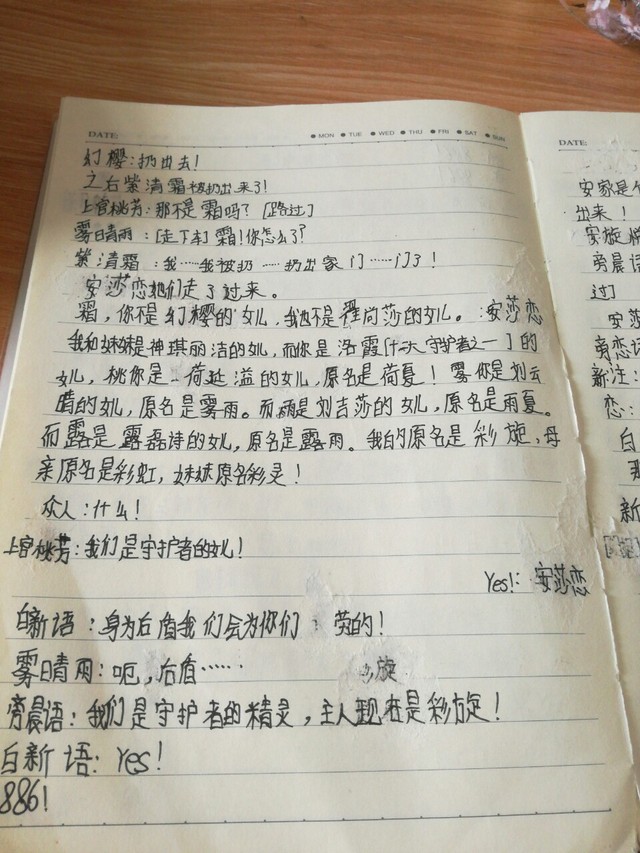 DATE:
MON TUE WED THU FRI SAT SUN
幻樱:扔出去!
之后紫清霜被扔出来了!
上官桃芳:那不是霜吗?[路过]
雾晴雨:[走下车]霜!你怎么了?
紫清霜:我……我被扔……扔出家门……门了!
安莎恋她们走了过来。
霜,你不是幻樱的女儿,我也不是尚莎的女儿。:安莎恋
我和妹妹是神琪丽洁的女儿,而你是洛霞[十二大守护者之一]的
女儿,桃你是荷延溢的女儿,原名是荷夏!雾你是刘云
晴的女儿,原名是雾雨。而雨是刘吉莎的女儿,原名是雨夏。
而露是露磊诗的女儿,原名是露雨。我的原名是彩旋,母
亲原名是彩虹,妹妹原名彩灵!
众人:什么!
上官桃芳:我们是守护者的女儿!
Yes!:安莎恋
白新语:身为后盾我们会为你们劳的!
雾晴雨:呃,后盾……
旋
旁晨语:我们是守护者的精灵,主人现在是彩旋!
白新语:Yes!
886!
DATE:
安家是
出来!
安旋
旁晨语
过]
安莎
旁恋语
新注:
恋:
白
那
新